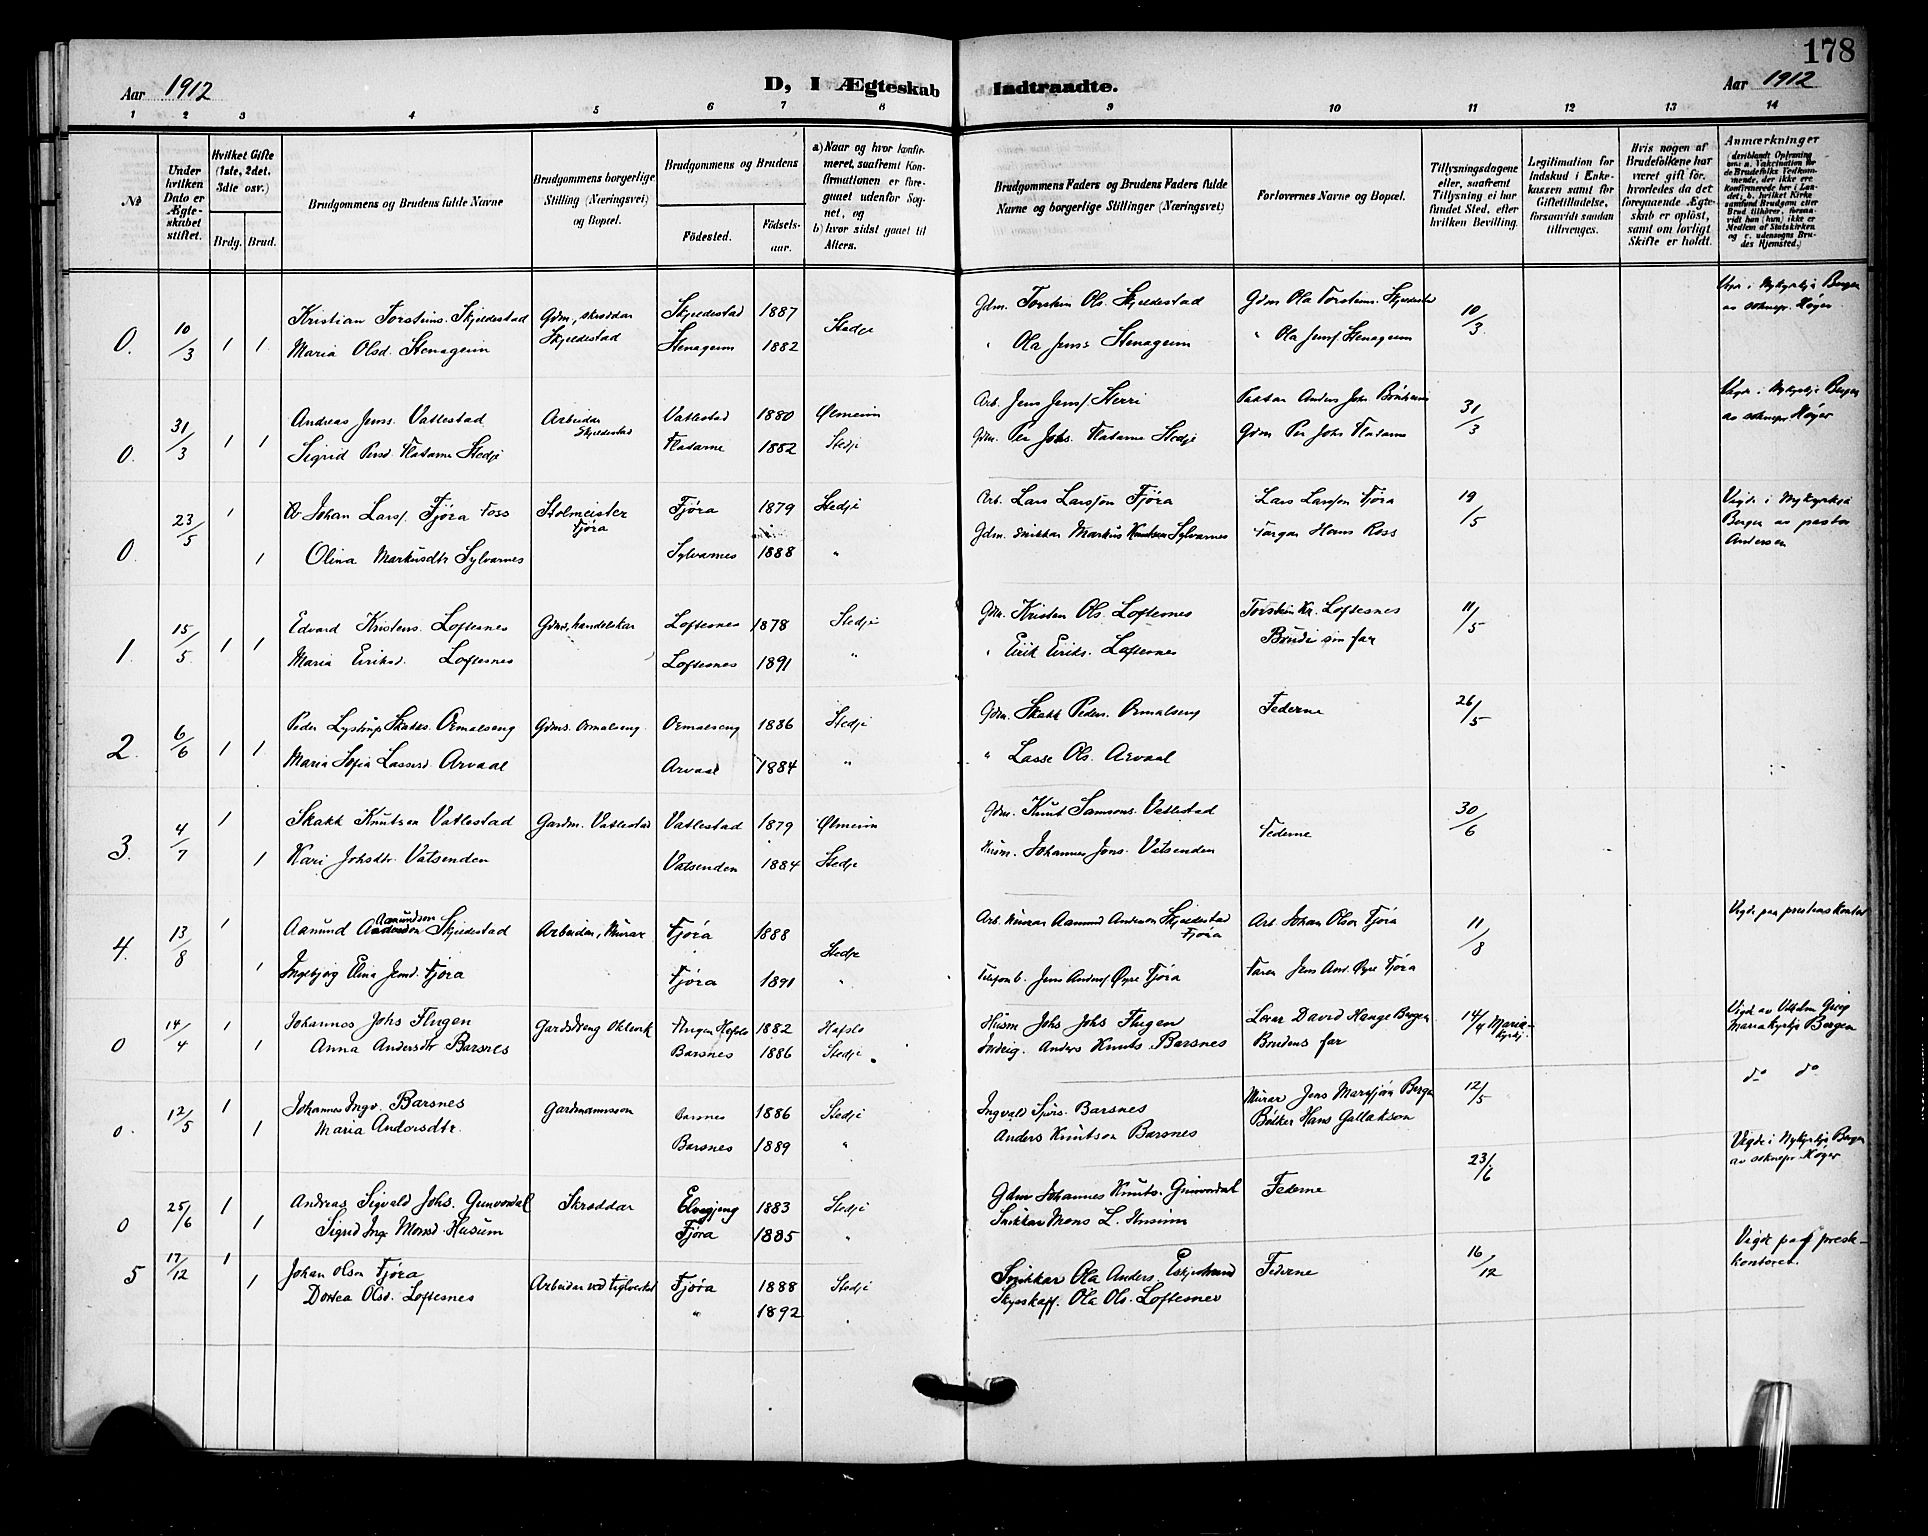 178
Aar 1912
D, I Ægteskab Indtraadte.
Aar 1912
1 2 3 4 5 6 7 8 9 10 11 12 13 14
No
Under hvilken Dato er Ægteskabet stiftet.
Hvilket Gifte (1ste, 2det, 3die osv.)
Brdg. Brud.
Brudgommens og Brudens fulde Navne
Brudgommens borgerlige Stilling (Næringsvei) og Bopæl.
Brudgommens og Brudens
Fødested. Fødselsaar.
a) Naar og hvor konfirmeret, saafremt Konfirmationen er foregaaet udenfor Sognet, og
b) hvor sidst gaaet til Alters.
Brudgommens Faders og Brudens Faders fulde Navne og borgerlige Stillinger (Næringsvei)
Forlovernes Navne og Bopæl.
Tillysningsdagene eller, saafremt Tillysning ei har fundet Sted, efter hvilken Bevilling.
Legitimation for Indskud i Enkekassen samt for Giftetilladelse, forsaavidt saadan tiltrænges.
Hvis nogen af Brudefolkene har været gift før, hvorledes da det foregaaende Ægteskab er opløst, samt om lovligt Skifte er holdt.
Anmærkninger
0. 10/3 1 1 Kristian Torsteins. Skjeldestad Gdm., skrøddar Skjeldestad Skjeldestad 1887 Stedje Gdm. Torstein Ols. Skjeldestad Gdm Ola Torsteins. Skjeldestad 10/3 Vigde i Nykyrkja Bergen av soknepr. Høyer
Maria Olsd. Stenageim Stenageim 1882 " Ola Jens. Stenageim " Ola Jens. Stenageim
0. 31/3 1 1 Andreas Jens. Vatlestad Arbeidar Skjeldestad Vatlestad 1880 Ølmeim Arb. Jens Jens. Herri Anders Johs 31/3 Vigde i Nykyrkja Bergen av soknepr Høyer
Sigrid Persd. Flatarne Stedje Flatarne 1882 Stedje Gdm. Per Johs. Flatarne Stedje Gdm Per Johs Flatarne
0. 23/5 1 Johan Lars. Fjøra Foss Stolmeister Fjøra Fjøra 1879 Stedje Arb. Lars Larsson Fjøra Lars Larsson Fjøra 19/5 Vigde i Nykyrkja Bergen av pastor Andersen
1 Olina Markusdtr Sylvarnes Sylvarnes 1888 " Gdm. snikkar Markus Knutson Sylvarnes Hans Ross
1. 15/5 1 1 Edvard Kristens. Loftesnes Gdms, handelskar Loftesnes 1878 Stedje Gdm. Kristen Ols. Loftesnes Torstein Kr. Loftesnes 11/5
Maria Eiriksd. Loftesnes Loftesnes 1891 " " Eirik Eiriks. Loftesnes Brudi sin far
2. 6/6 1 1 Peder Lystrup Skaks. Ormalseng Gdms. Ormalseng Ormalseng 1886 Stedje Gdm. Skakk Peders. Ormalseng Federne 26/5
Maria Sofia Lassesd. Arvaal Arvaal 1884 " " Lasse Ols. Arvaal
3. 4/7 1 Skakk Knutsen Vatlestad Gardm. Vatlestad Vatlestad 1879 Ølmeim Gdm. Knut Samsons. Vatlestad Federne 30/6
1 Kari Johsdtr. Vatsenden Vatsenden 1884 Stedje Husm. Johannes Jons. Vatsenden
4. 13/8 1 Aamund Aamundson Skjeldestad Arbeidar, Murar Fjøra 1888 Stedje Arb. Murar Aamund Anderson Skjeldestad Fjøra Arb. Johan Olson Fjøra 11/8 Vigde paa prestens kontor
1 Ingebjørg Elina Jensd. Fjøra Fjøra 1891 " Jens Anders. Øyre Fjøra Faren Jens And. Øyre Fjøra
0 14/4 1 Johannes Johs Flugen Gardsdreng Flugen Hafslo 1882 Hafslo Husm Johs Johs Flugen David Hauge Bergen 14/4 Mariakyrkj. Vigd av Vilhelm Grieg Mariakyrkja Bergen
1 Anna Andersdtr Barsnes Barsnes 1886 Stedje Anders Knuts. Barsnes Brudens far
0. 12/5 1 Johannes Ingv. Barsnes Gardmannsson Barsnes 1886 Stedje Ingvald Sjurs. Barsnes Murar Jens Bergen 12/5 do do
1 Maria Andersdtr. Barsnes 1889 " Anders Knutson Barsnes Hans
0 25/6 1 Andreas Sigvald Johs. Gunvordal Skræddar Elvegjeng 1883 Stedje Gdm Johannes Knuts. Gunvordal Federne 23/6 Vigde i Nykyrkja Bergen av soknepr Høyer
1 Sigrid Monsd. Husum Fjøra 1885 " Snikkar Mons L. Husum
5 17/12 1 Johan Olson Fjøra Arbeidar ved Teglverket Fjøra 1888 Stedje Snikkar Ola Anders. Eskjestrand Federne 16/12 Vigde paa preskontoret.
1 Dortea Olsd. Loftesnes " 1892 " Skysskaff. Ola Ols. Loftesnes